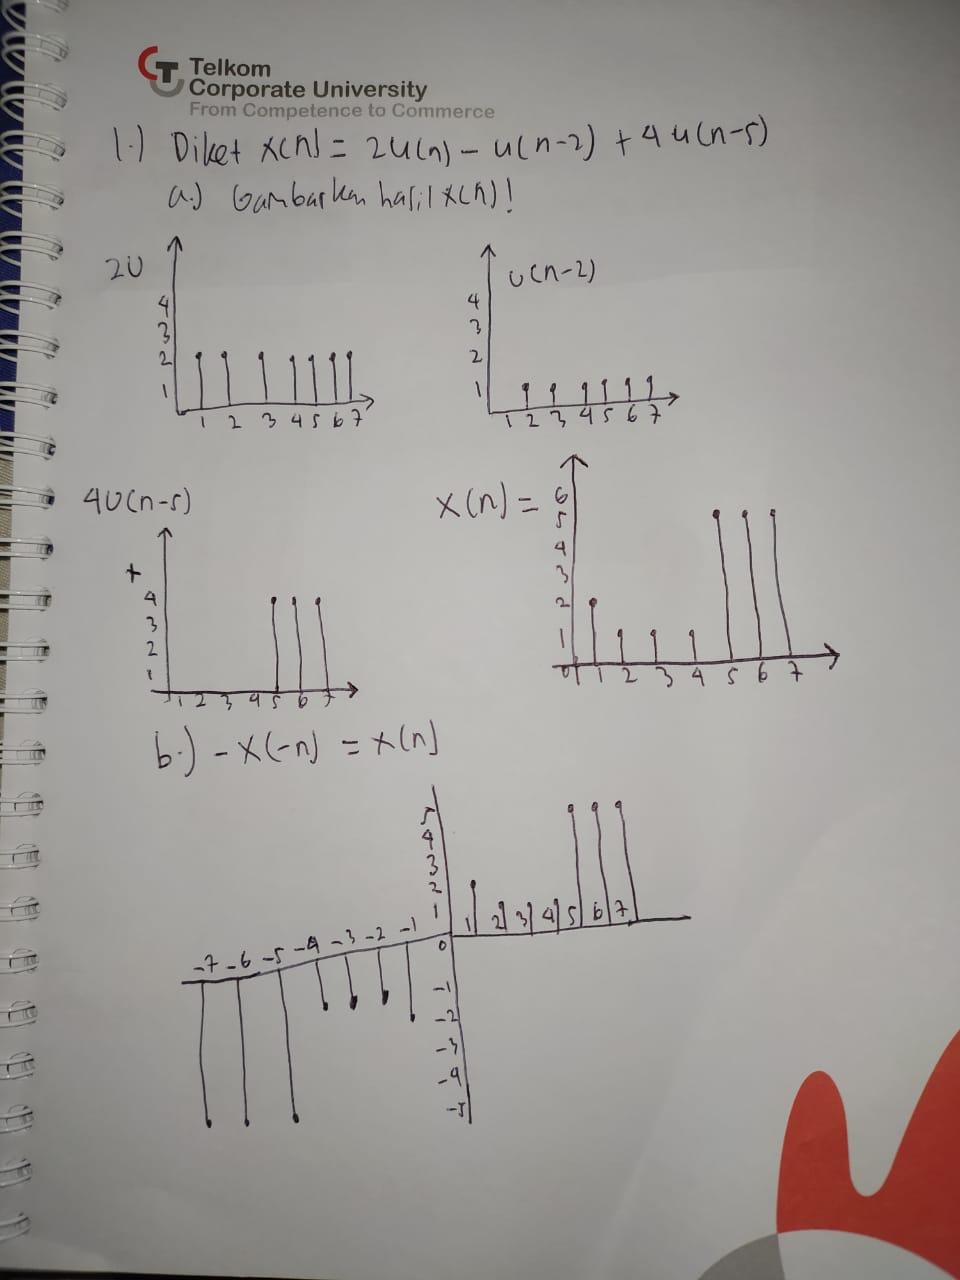 Telkom
Corporate University
From Competence to Commerce
1.) Diket x(n) = 2u(n) - u(n-2) + 4u(n-5)
a.) Gambarkan hasil x(n)!
2U
4
3
2
1
1 2 3 4 5 6 7
u(n-2)
4
3
2
1
1 2 3 4 5 6 7
4U(n-5)
+
4
3
2
1
1 2 3 4 5 6 7
x(n) =
6
5
4
3
2
1
0 1 2 3 4 5 6 7
b.) -x(-n) = x(n)
5
4
3
2
1
1 2 3 4 5 6 7
-7 -6 -5 -4 -3 -2 -1
0
-1
-2
-3
-4
-5